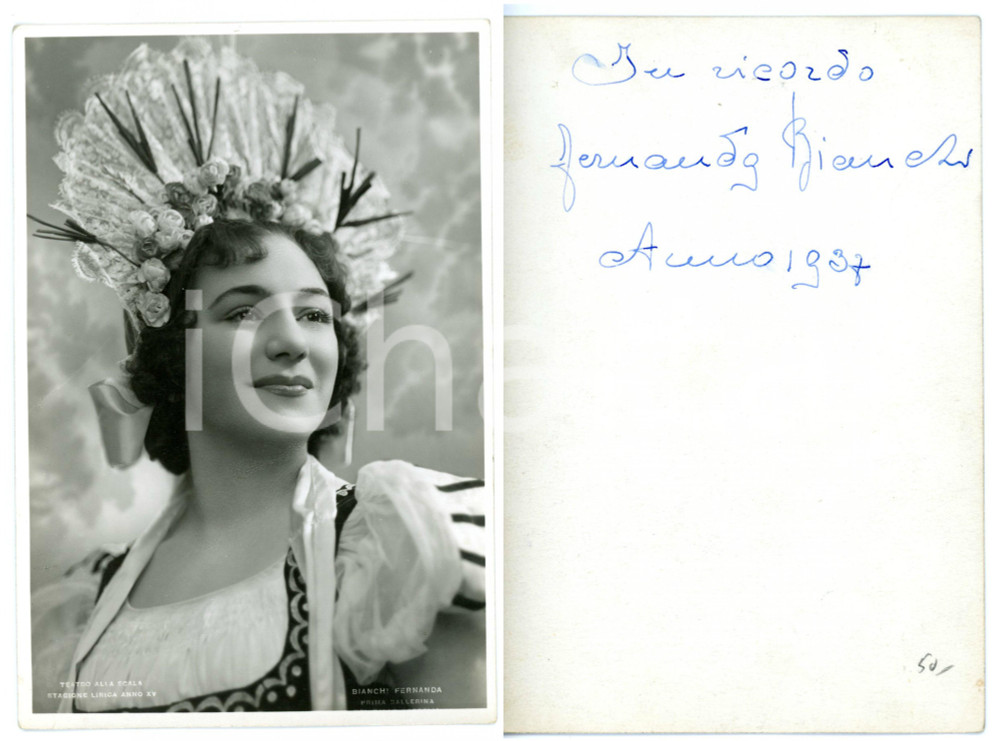 TEATRO ALLA SCALA
STAGIONE LIRICA ANNO XV
BIANCHI FERNANDA
PRIMA BALLERINA
iCha
In ricordo
Fernanda Bianchi
Anno 1937
50,-